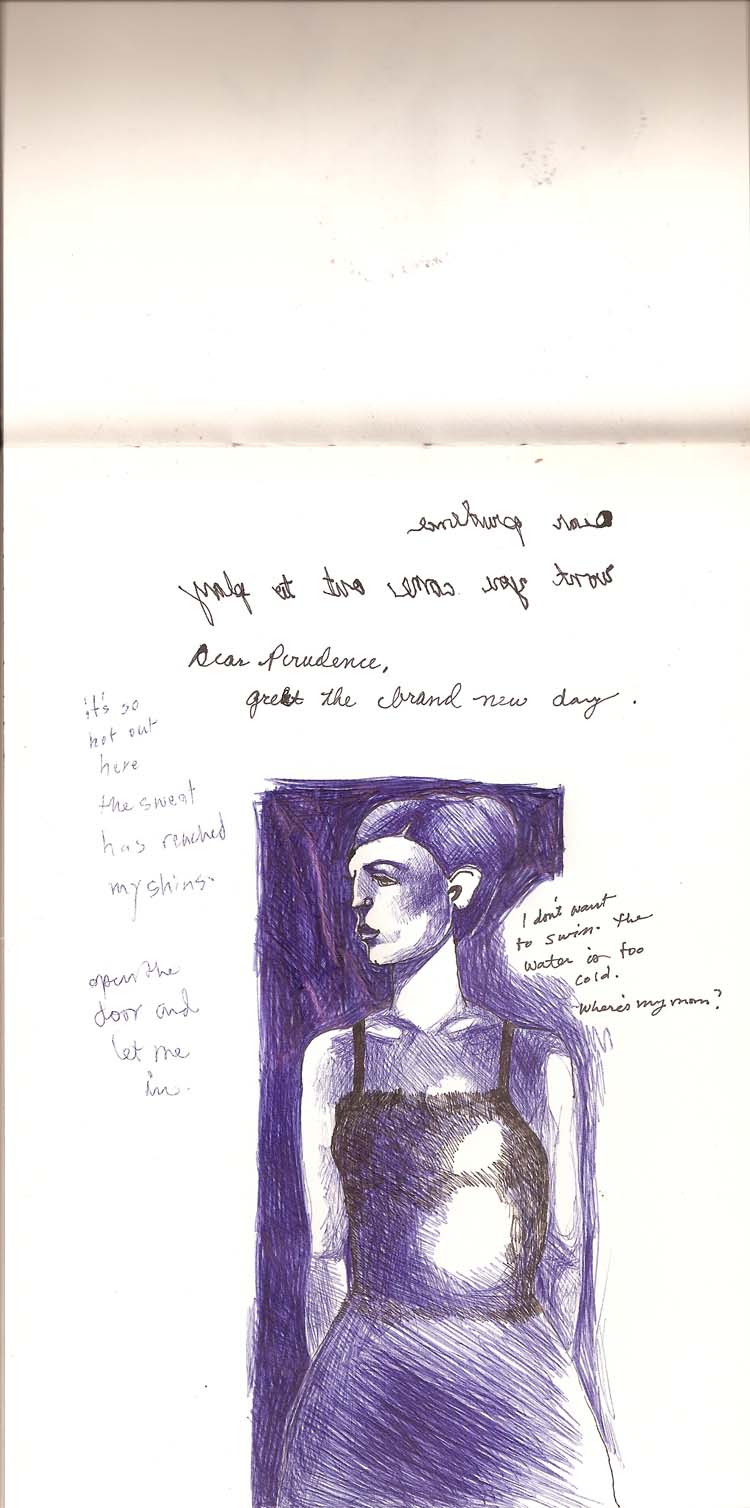 Dear prudence
wont you come out to play
Dear Prudence,
greet the brand new day.
it's so
hot out
here
the sweat
has reached
my shins.
open the
door and
let me
in.
I don't want
to swim. the
water is too
cold.
Where's my mom?